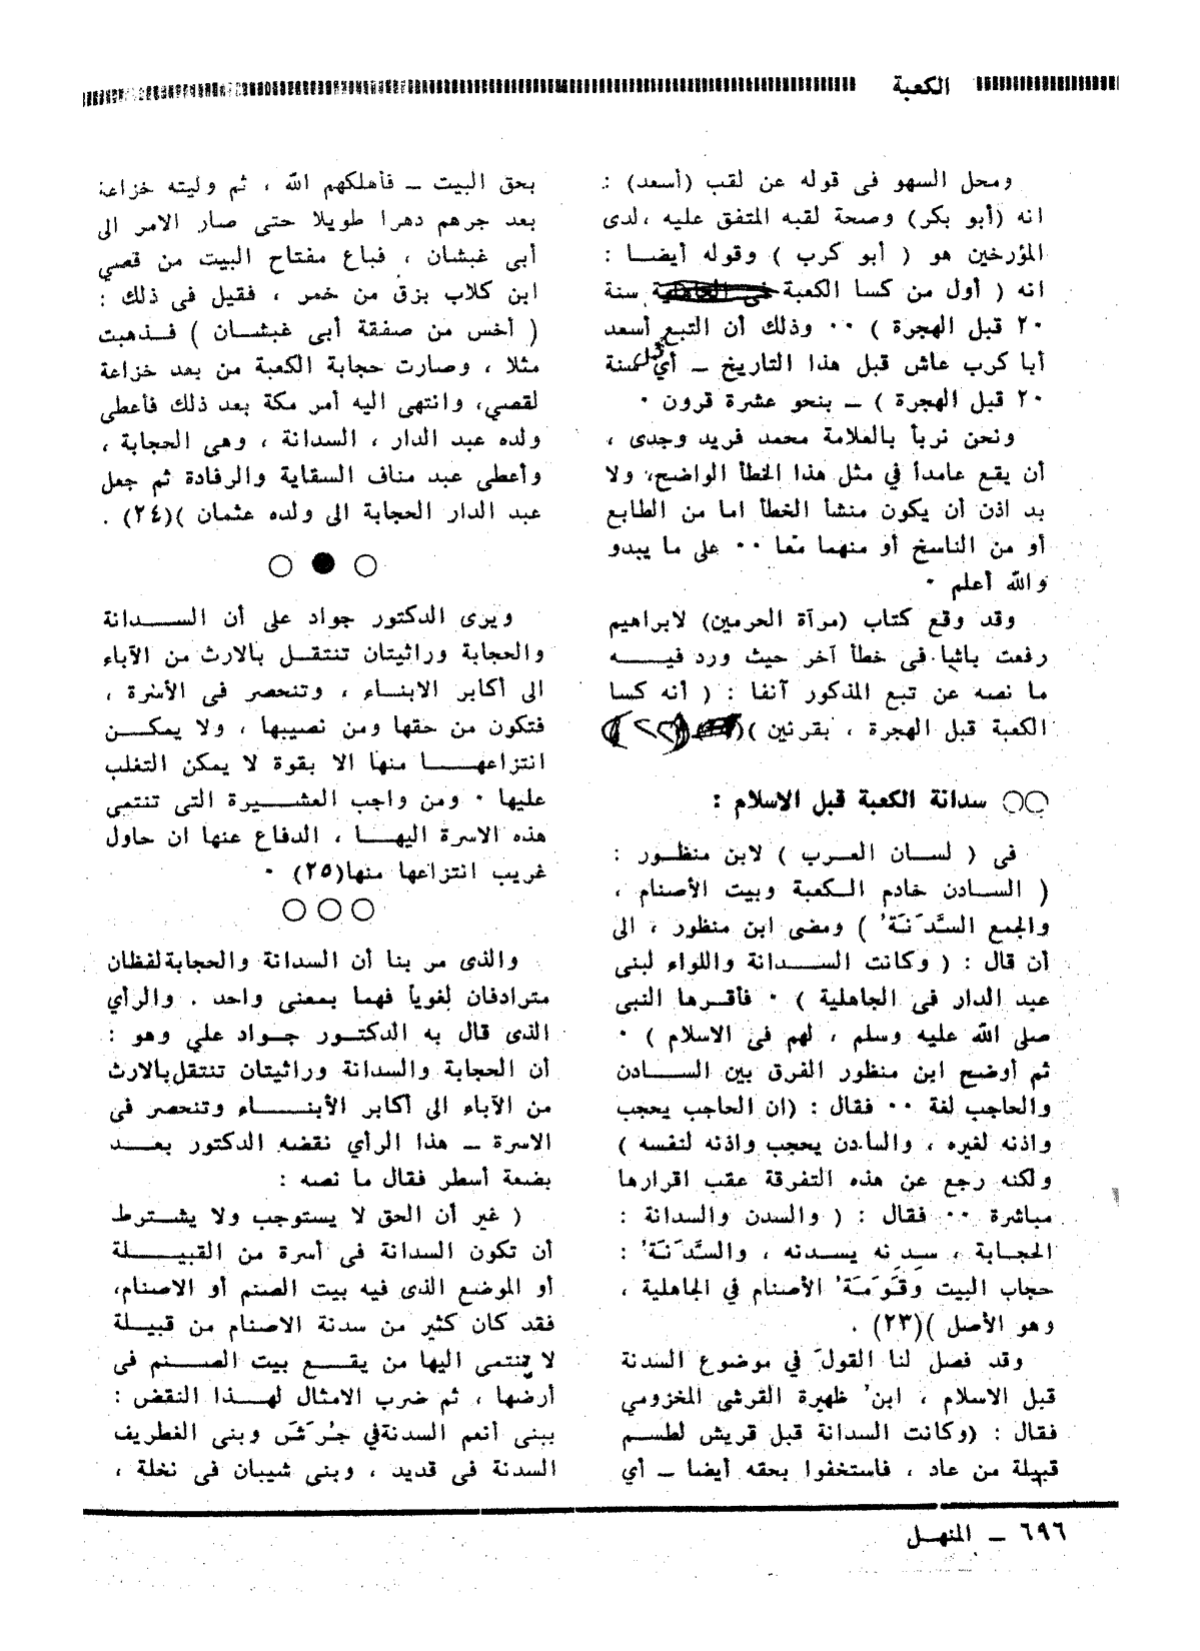 الكعبة
ومحل السهو فى قوله عن لقب (أسعد) :
انه (أبو بكر) وصحة لقبه المتفق عليه ،لدى
المؤرخين هو ( أبو كرب ) وقوله أيضـا :
انه ( أول من كسا الكعبة سنة
٢٠ قبل الهجرة ) ٠٠ وذلك أن التبع أسعد
أبا كرب عاش قبل هذا التاريخ ـ أي سنة
٢٠ قبل الهجرة ) ـ بنحو عشرة قرون ٠
ونحن نربأ بالعلامة محمد فريد وجدى ،
أن يقع عامداً في مثل هذا الخطأ الواضح، ولا
بد اذن أن يكون منشأ الخطأ اما من الطابع
أو من الناسخ أو منهما معا ٠٠ على ما يبدو
والله أعلم ٠
وقد وقع كتاب (مرآة الحرمين) لابراهيم
رفعت باشا فى خطأ آخر حيث ورد فيـــه
ما نصه عن تبع المذكور آنفا : ( أنه كسا
الكعبة قبل الهجرة ، بقرنين )(٢٢)
○○ سدانة الكعبة قبل الاسلام :
فى ( لسـان العـرب ) لابن منظـور :
( السـادن خادم الـكعبة وبيت الأصنام ،
والجمع السَّدَنَة ) ومضى ابن منظور ، الى
أن قال : ( وكانت الســـدانة واللواء لبنى
عبد الدار فى الجاهلية ) ٠ فأقـرها النبى
صلى الله عليه وسلم ، لهم فى الاسلام ) ٠
ثم أوضح ابن منظور الفرق بين الســـادن
والحاجب لغة ٠٠ فقال : (ان الحاجب يحجب
واذنه لغيره ، والسادن يحجب واذنه لنفسه )
ولكنه رجع عن هذه التفرقة عقب اقرارها
مباشرة ٠٠ فقال : ( والسدن والسدانة :
الحجـابة ، سدنه يسدنه ، والسَّدَنَة :
حجاب البيت وقَوَمَة الأصنام في الجاهلية ،
وهو الأصل )(٢٣) .
وقد فصل لنا القول في موضوع السدنة
قبل الاسلام ، ابن ظهيرة القرشى المخزومي
فقال : (وكانت السدانة قبل قريش لطسـم
قبيلة من عاد ، فاستخفوا بحقه أيضا ـ أي
بحق البيت ـ فأهلكهم الله ، ثم وليته خزاعة
بعد جرهم دهرا طويلا حتى صار الامر الى
أبى غبشان ، فباع مفتاح البيت من قصي
ابن كلاب بزق من خمر ، فقيل فى ذلك :
( أخس من صفقة أبى غبشـان ) فـذهبت
مثلا ، وصارت حجابة الكعبة من بعد خزاعة
لقصي، وانتهى اليه أمر مكة بعد ذلك فأعطى
ولده عبد الدار ، السدانة ، وهى الحجابة ،
وأعطى عبد مناف السقاية والرفادة ثم جعل
عبد الدار الحجابة الى ولده عثمان )(٢٤) .
○ ● ○
ويرى الدكتور جواد على أن الســـدانة
والحجابة وراثيتان تنتقـل بالارث من الآباء
الى أكابر الابنـاء ، وتنحصر فى الأسرة ،
فتكون من حقها ومن نصيبها ، ولا يمكـــن
انتزاعهــــا منها الا بقوة لا يمكن التغلب
عليها ٠ ومن واجب العشـــيرة التى تنتمى
هذه الاسرة اليهـــا ، الدفاع عنها ان حاول
غريب انتزاعها منها(٢٥) ٠
○○○
والذى مر بنا أن السدانة والحجابة لفظان
مترادفان لغوياً فهما بمعنى واحد . والرأي
الذى قال به الدكتـور جـواد علي وهو :
أن الحجابة والسدانة وراثيتان تنتقل بالارث
من الآباء الى أكابر الأبنـــاء وتنحصر فى
الاسرة ـ هذا الرأي نقضه الدكتور بعـــد
بضعة أسطر فقال ما نصه :
( غير أن الحق لا يستوجب ولا يشـترط
أن تكون السدانة فى أسرة من القبيـــلة
أو الموضع الذى فيه بيت الصنم أو الاصنام،
فقد كان كثير من سدنة الاصنام من قبيـلة
لا تنتمى اليها من يقـــع بيت الصـــنم فى
أرضها ، ثم ضرب الامثال لهـــذا النقض :
ببنى أنعم السدنة في جُرَش وبنى الغطريف
السدنة فى قديد ، وبنى شيبان فى نخلة ،
٦٩٦ ـ المنهـل